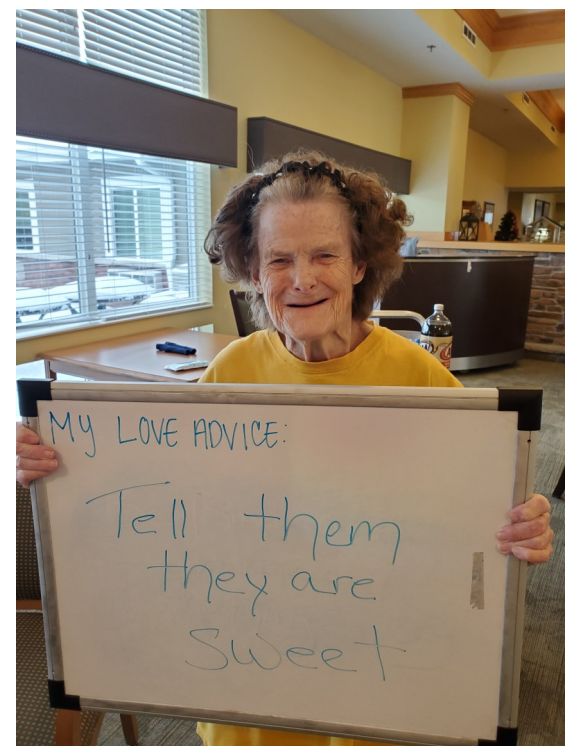 MY LOVE ADVICE:
Tell them
they are
sweet